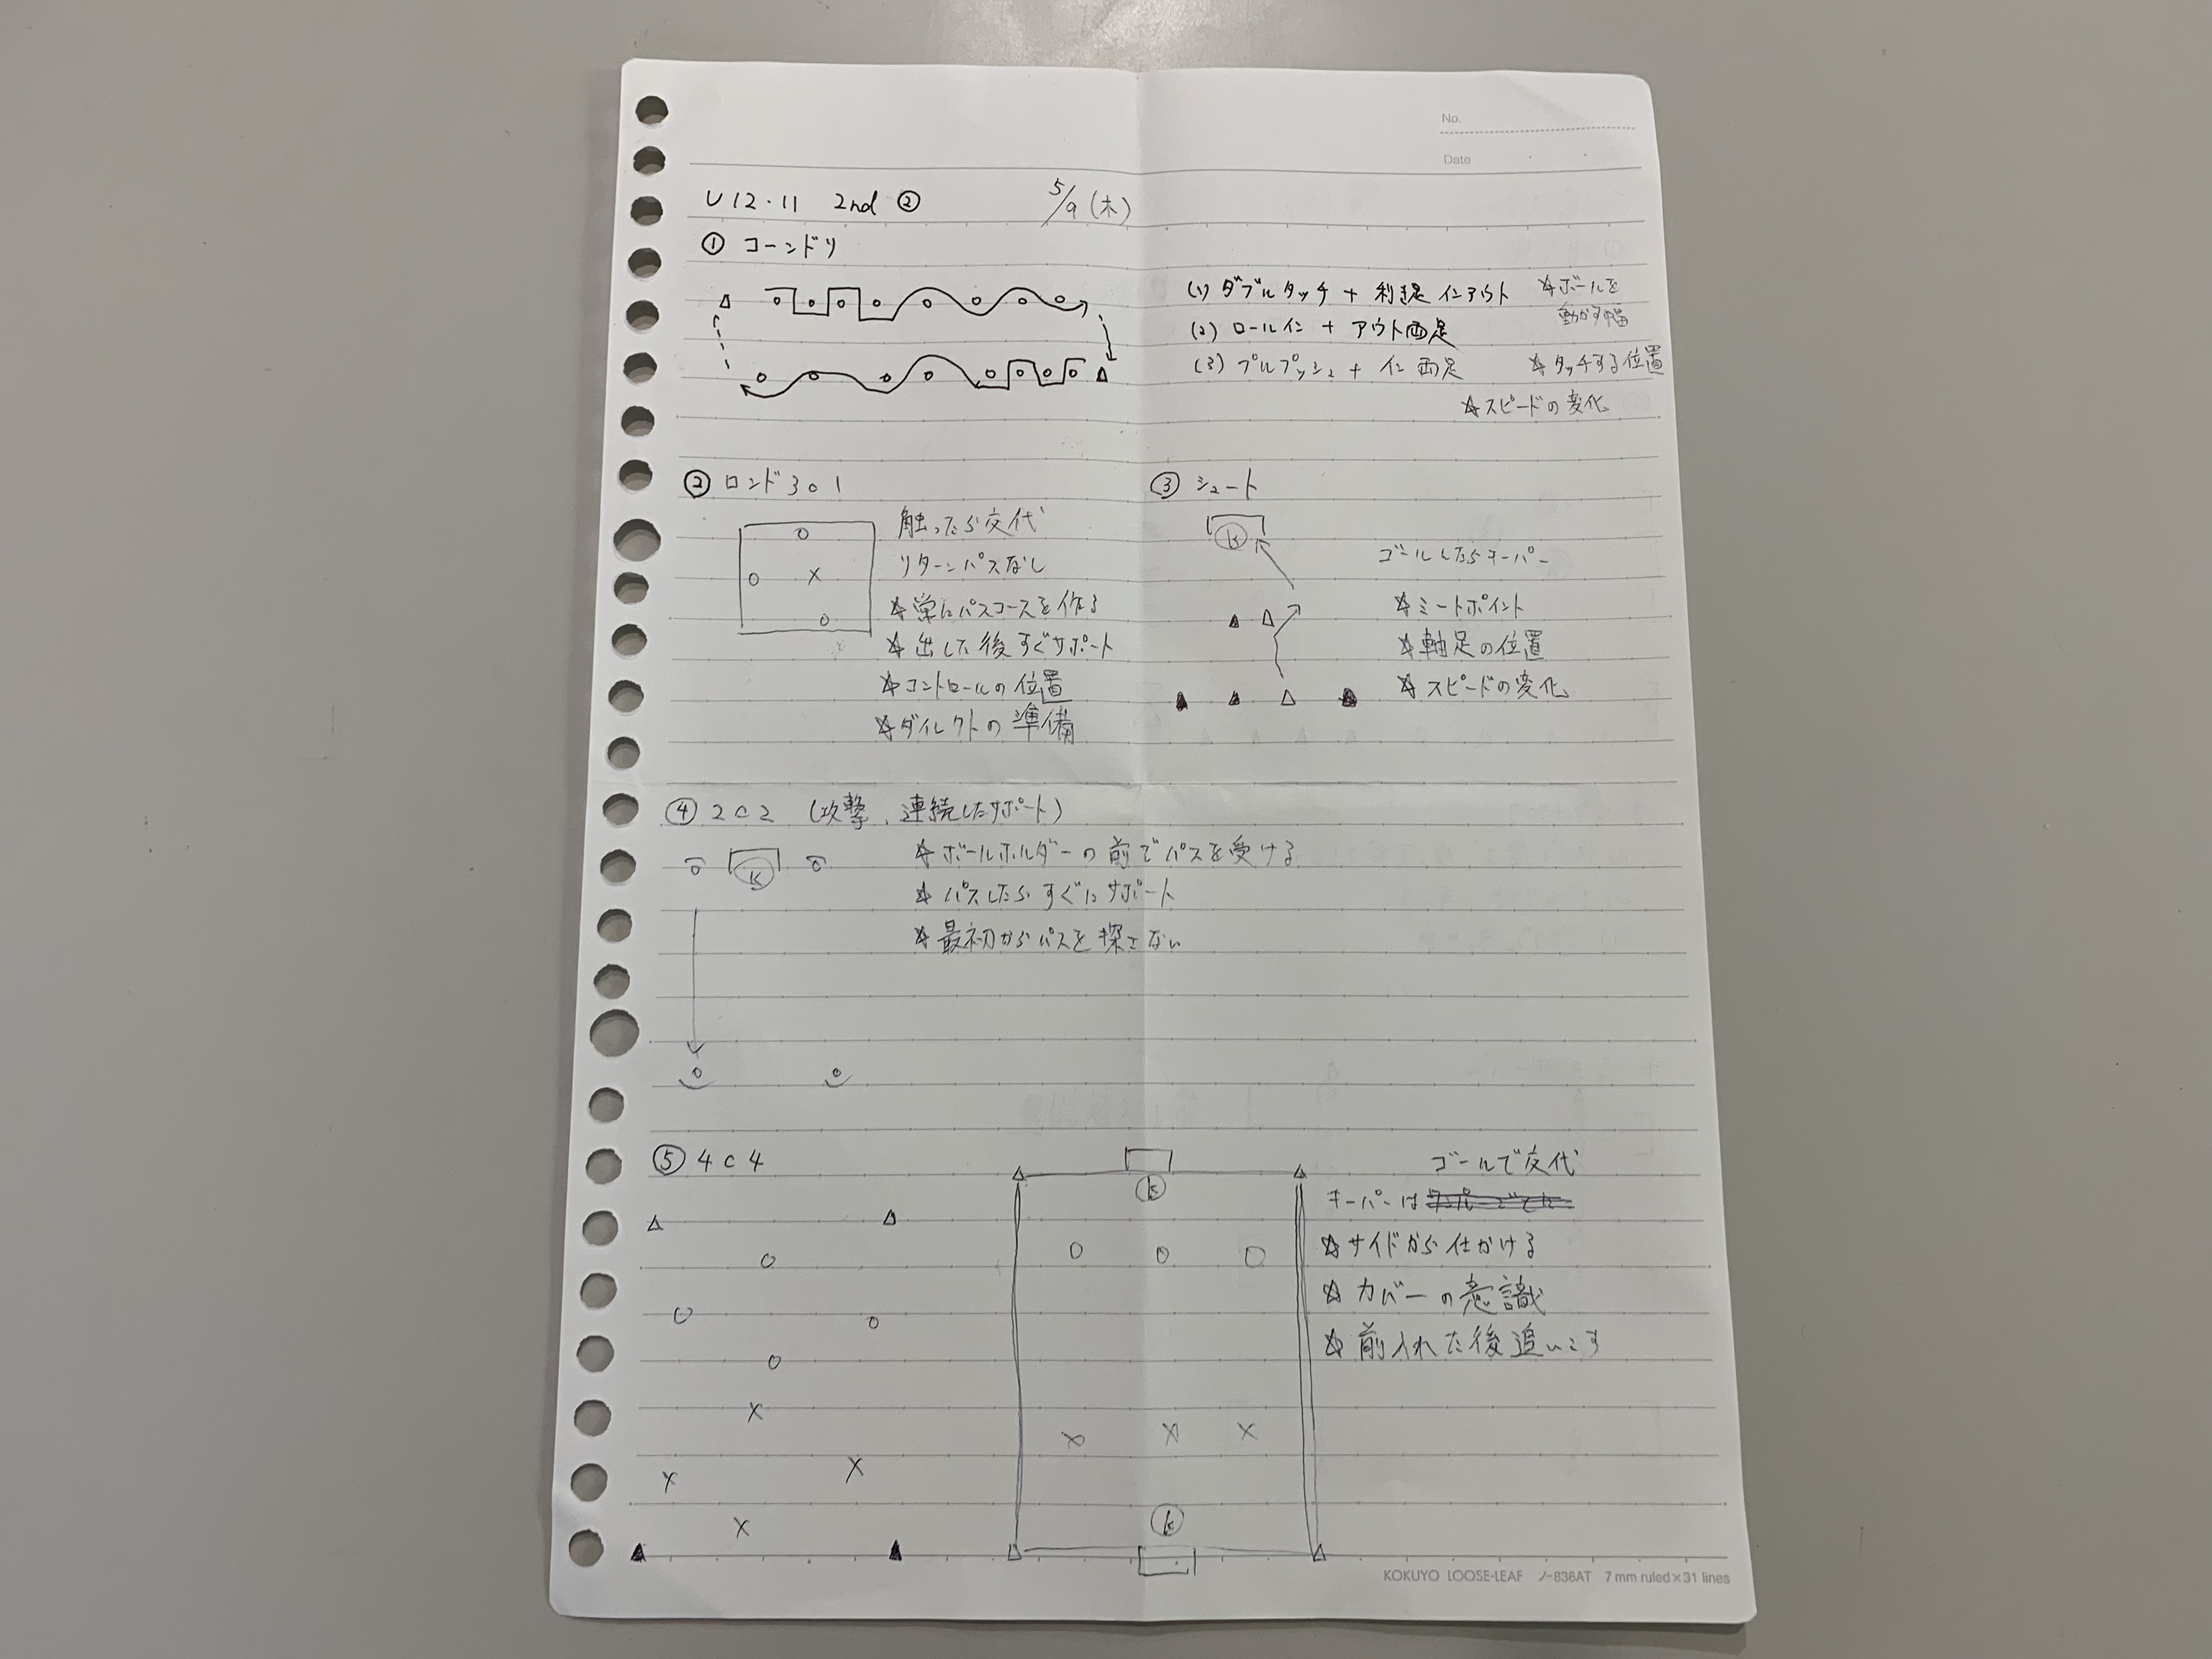 No.
Date
U12・11 2nd ② 5/9(木)
① コーンドリ
(1) ダブルタッチ + 利き足 インアウト ☆ボールを
動かす幅
(2) ロールイン + アウト両足
(3) プルプッシュ + イン 両足 ☆タッチする位置
☆スピードの変化
② ロンド3c1
触ったら交代
リターンパスなし
☆常にパスコースを作る
☆出した後すぐサポート
☆コントロールの位置
☆ダイレクトの準備
③ シュート
K
ゴールしたらキーパー
☆ミートポイント
☆軸足の位置
☆スピードの変化
④ 2c2 (攻撃、連続したサポート)
K
☆ボールホルダーの前でパスを受ける
☆パスしたらすぐにサポート
☆最初からパスを探さない
⑤ 4c4
K
K
ゴールで交代
キーパーは
☆サイドから仕かける
☆カバーの意識
☆前入れた後追いこす
KOKUYO LOOSE-LEAF ノ-836AT 7 mm ruled×31 lines